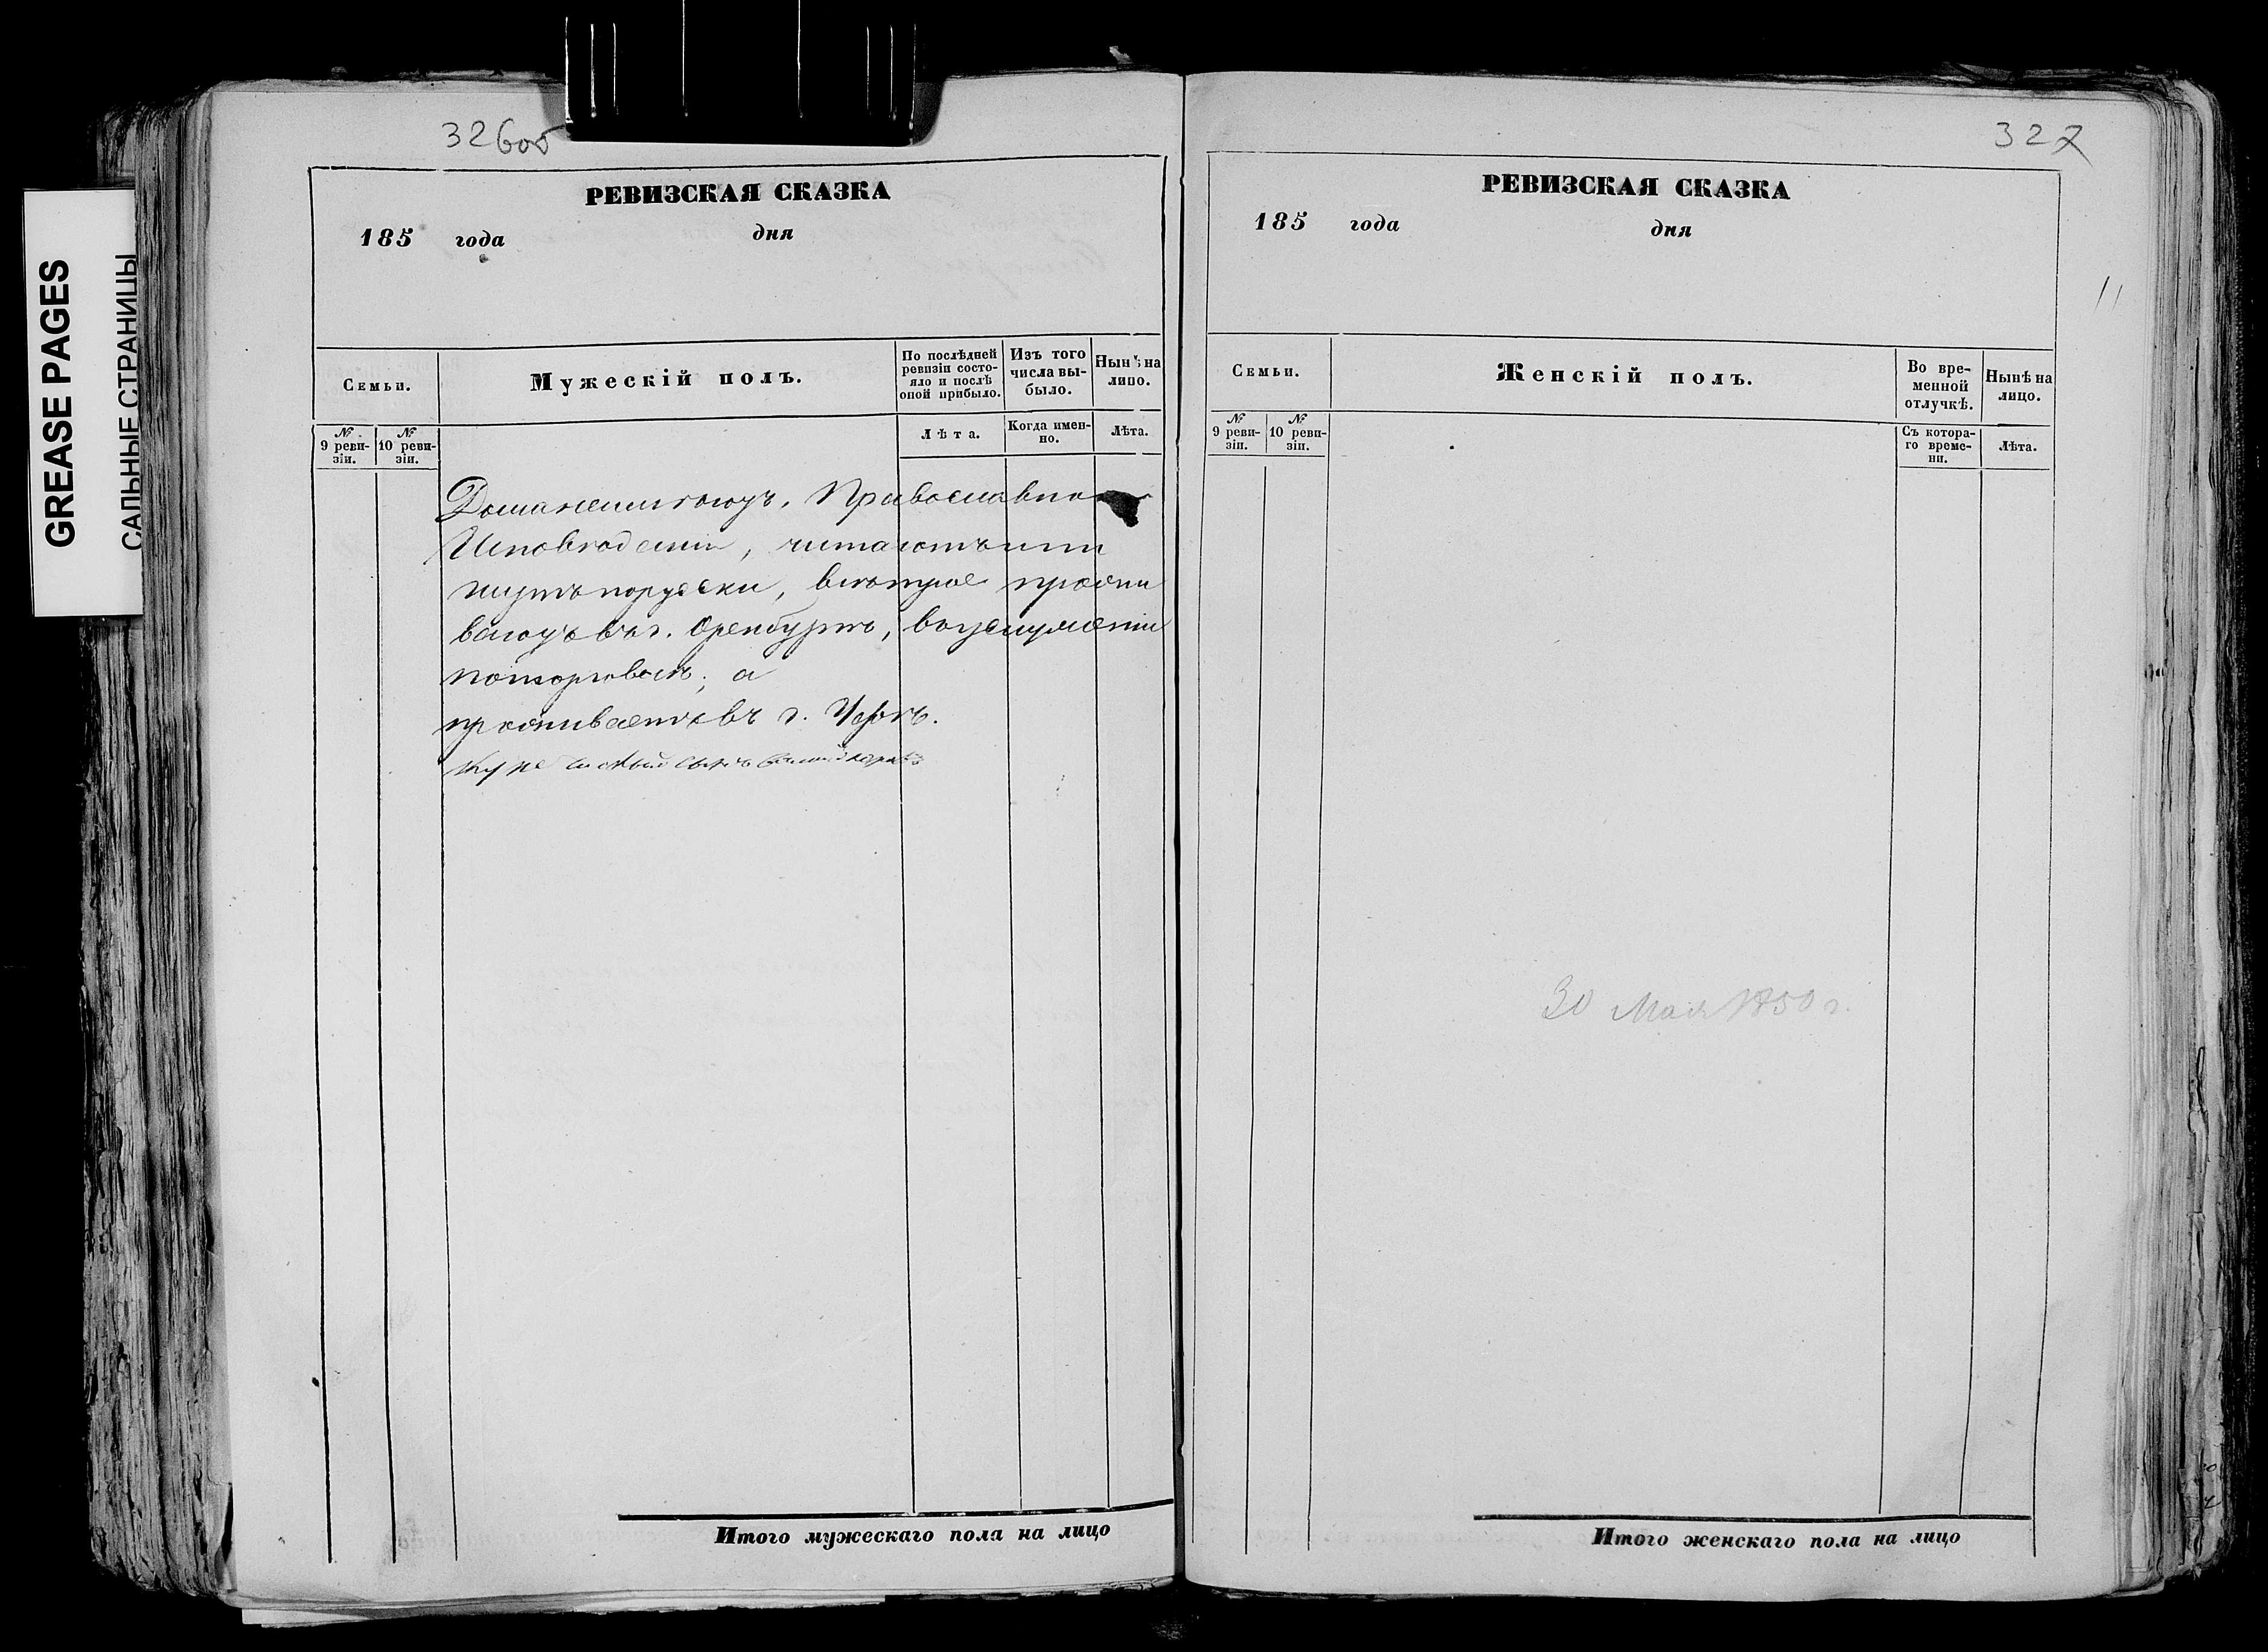 GREASE PAGES
САЛЬНЫЕ СТРАНИЦЫ
326об
РЕВИЗСКАЯ СКАЗКА
185 года дня
Семьи.
Мужескій полъ.
По послѣдней ревизіи состояло и послѣ оной прибыло.
Изъ того числа выбыло.
Нынѣ на лицо.
№ 9 ревизіи.
№ 10 ревизіи.
Лѣта.
Когда именно.
Лѣта.
Православно
Исповѣданія, читаютъ и пи
шутъ порусски,
ваютъ въ г. Оренбургѣ,
поторговлѣ; а
проживаетъ въ г. Уфѣ.
Купеческій сынъ
Итого мужескаго пола на лицо
327
РЕВИЗСКАЯ СКАЗКА
185 года дня
11
Семьи.
Женскій полъ.
Во временной отлучкѣ.
Нынѣ на лицо.
№ 9 ревизіи.
№ 10 ревизіи.
Съ котораго времени.
Лѣта.
30 Мая 1850 г.
Итого женскаго пола на лицо